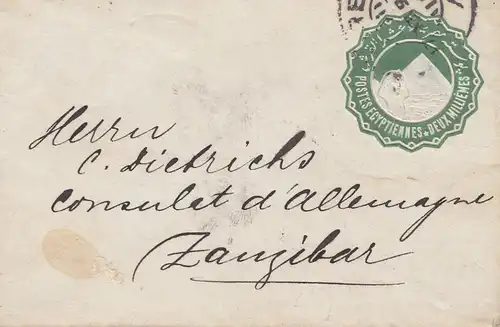 POSTES EGYPTIENNES * DEUX MILLIEMES
Herrn
C. Dietrichs
Consulat d'Allemagne
Zanzibar